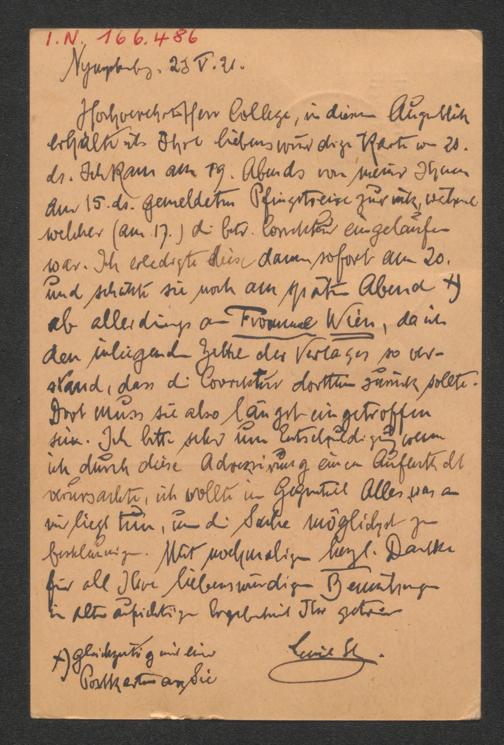 I.N. 166.486
Nymphenbg. 23 V. 21.
Hochverehrter Herr College, in diesem Augenblick
erhalte ich Ihre liebenswürdige Karte v. 20.
ds. Ich kam am 19. Abends von meiner Ihnen
am 15. ds. gemeldeten Pfingstreise zurück, während
welcher (am 17.) die betr. Correktur eingelaufen
war. Ich erledigte diese dann sofort am 20.
und schickte sie noch am späten Abend x)
ab allerdings an Fromme Wien, da ich
den inliegenden Zettel des Verlages so ver-
stand, dass die Correktur dorthin zurück sollte.
Dort muss sie also längst eingetroffen
sein. Ich bitte sehr um Entschuldigung, wenn
ich durch diese Adressirung einen Aufenthalt
verursachte, ich wollte im Gegenteil Alles, was an
mir liegt tun, um die Sache möglichst zu
beschleunigen. Mit nochmaligem herzl. Danke
für all Ihre liebenswürdigen Bemühungen
in alter aufrichtiger Ergebenheit Ihr getreuer
x) gleichzeitig mit einer
Postkarte an Sie